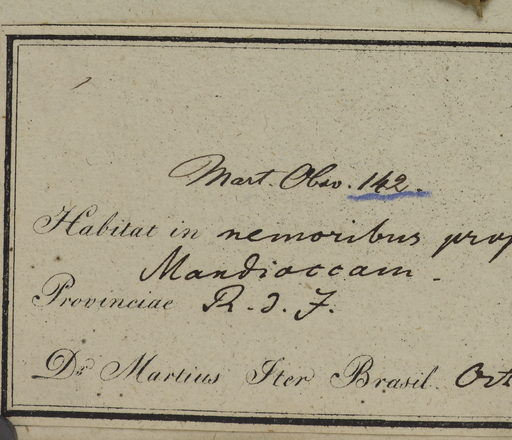 Mart. Obs. 142.
Habitat in nemoribus prop
Mandioccam.
Provinciae R. d. J.
Dr. Martius Iter Brasil. Oct